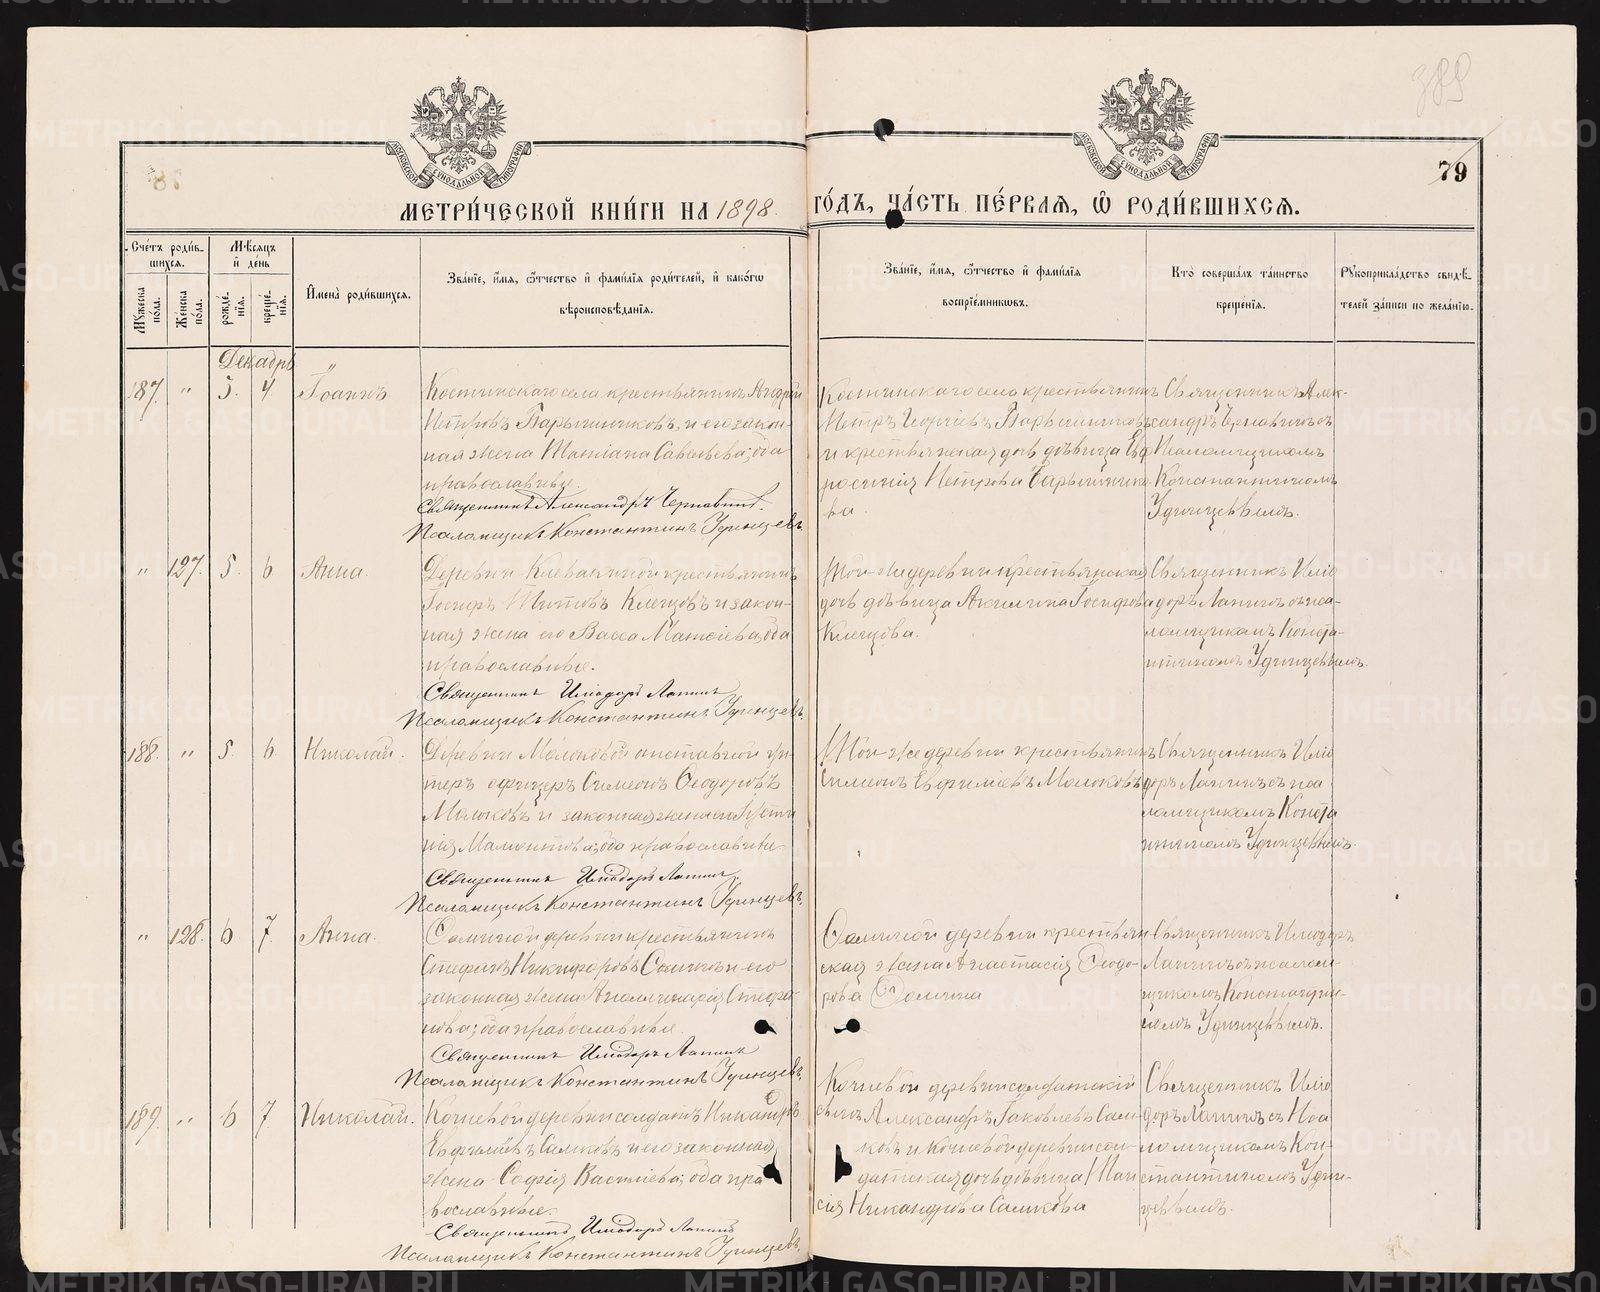 389
79
МЕТРИ́ЧЕСКОЙ КНИ́ГИ НА 1898
ГО́ДЪ, ЧА́СТЬ ПЕ́РВАЯ, Ѡ РОДИ́ВШИХСЯ.
Сче́тъ роди́в-
шихся.
Му́жеска по́ла.
Же́нска по́ла.
Мѣ́сяцъ
и҆ де́нь
рожде́-
нїя.
креще́-
нїя.
И҆мена̀ роди́вшихся.
Зва́нїе, и҆́мя, ѻ҆́тчество и҆ фами́лїя роди́телей, и҆ како́гѡ
вѣроисповѣ́данїя.
Зва́нїе, и҆́мя, ѻ҆́тчество и҆ фами́лїя
воспрїе́мникѡвъ.
Кто̀ соверша́лъ та́инство
креще́нїя.
Рꙋкоприкла́дство свидѣ́-
телей за́писи по жела́нїю.
Декабрь
187. " 3. 4 Іоаннъ
Костинскаго села крестьянинъ Андрей
Петровъ Барышниковъ, и его закон-
ная жена Татіана Савельева; оба
православные.
Священникъ Александръ Чернавинъ.
Псаломщикъ Константинъ Удинцевъ
Костинскаго села крестьянинъ
Петръ Георгіевъ Барышниковъ
и крестьянская дочь дѣвица Евф
росинія Петрова Барышнико
ва.
Священникъ Алек-
сандръ Чернавинъ съ
Псаломщикомъ
Константиномъ
Удинцевымъ.
" 127. 5. 6 Анна.
Деревни Клевакиной крестьянинъ
Іосифъ Титовъ Клещовъ и закон-
ная жена его Васса Матѳіева; оба
православные.
Священникъ Иліодоръ Лапинъ
Псаломщикъ Константинъ Удинцевъ.
Той-же деревни крестьянская
дочь дѣвица Акилина Іосифова
Клещова.
Священникъ Иліо
доръ Лапинъ съ пса-
ломщикомъ Конста-
нтиномъ Удинцевымъ.
188. " 5 6 Николай.
Деревни Мольковой отставной ун-
теръ офицеръ Симеонъ Ѳеодоровъ
Мольковъ и законная жена
Мамонтова; оба православные
Священникъ Иліодоръ Лапинъ
Псаломщикъ Константинъ Удинцевъ.
Той-же деревни крестьянинъ
Симеонъ Евфиміевъ Мольковъ
Священникъ Иліо
доръ Лапинъ съ пса
ломщикомъ Конста
нтиномъ Удинцевымъ.
" 128. 6 7. Анна.
деревни крестьянинъ
Стефанъ Никифоровъ и его
законная жена Аполлинарія Стефа-
нова; оба православные.
Священникъ Иліодоръ Лапинъ
Псаломщикъ Константинъ Удинцевъ.
деревни крестьян
ская жена Анастасія Ѳеодо-
рова
Священникъ Иліодоръ
Лапинъ съ псалом-
щикомъ Константи-
номъ Удинцевымъ.
189. " 6 7 Николай.
деревни солдатъ Никандръ
Евфиміевъ и его законная
жена Софія Васильева; оба пра
вославные.
Священникъ Иліодоръ Лапинъ
Псаломщикъ Константинъ Удинцевъ.
деревни солдатскій
сынъ Александръ Іаковлевъ
и деревни сол-
датская дочь дѣвица
Никандрова
Священникъ Иліо
доръ Лапинъ съ Пса
ломщикомъ Кон-
стантиномъ Удин-
цевымъ.
METRIKI.GASO-URAL.RU